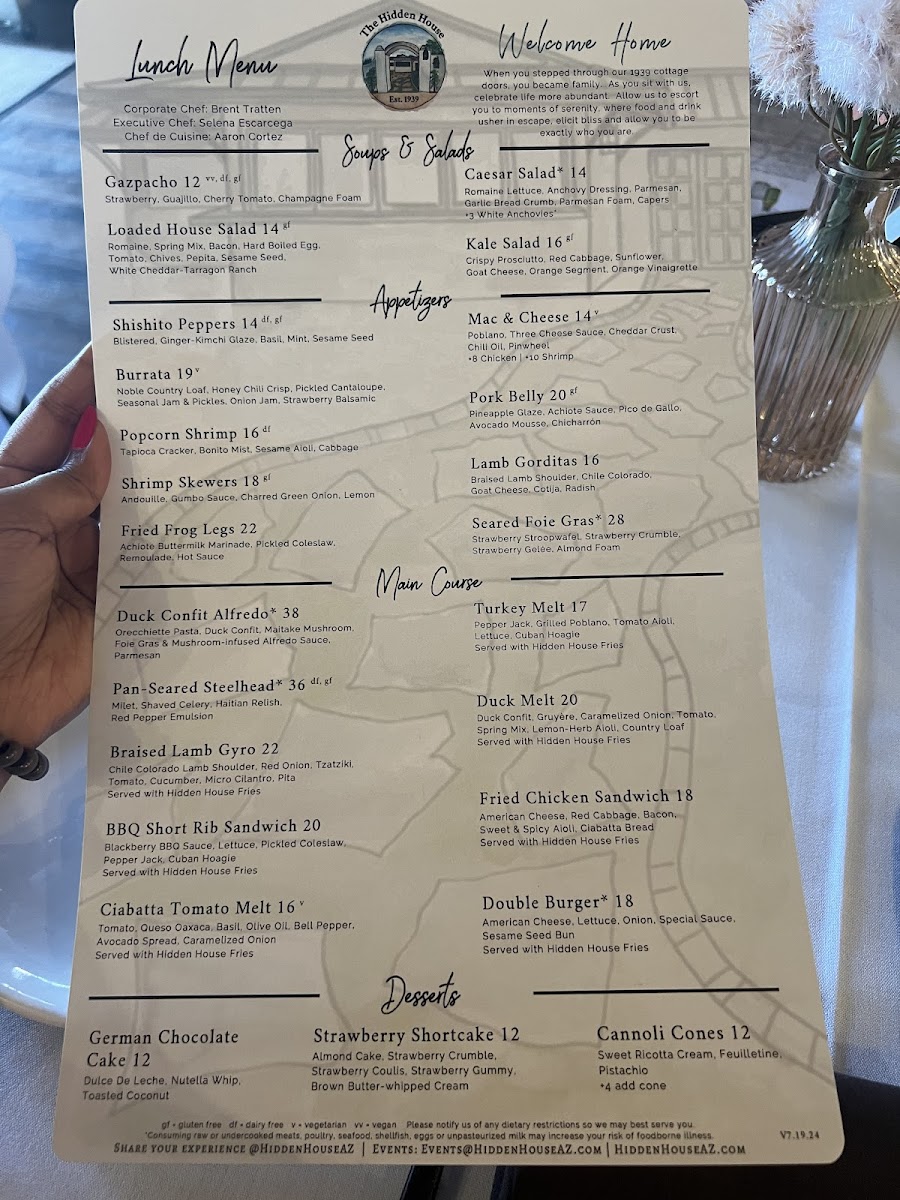 Lunch Menu
Corporate Chef: Brent Tratten
Executive Chef: Selena Escarcega
Chef de Cuisine: Aaron Cortez
The Hidden House
Est. 1939
Welcome Home
When you stepped through our 1939 cottage
doors, you became family. As you sit with us,
celebrate life more abundant. Allow us to escort
you to moments of serenity, where food and drink
usher in escape, elicit bliss and allow you to be
exactly who you are.
Soups & Salads
Gazpacho 12 vv, df, gf
Strawberry, Guajillo, Cherry Tomato, Champagne Foam
Loaded House Salad 14 gf
Romaine, Spring Mix, Bacon, Hard Boiled Egg,
Tomato, Chives, Pepita, Sesame Seed,
White Cheddar-Tarragon Ranch
Caesar Salad* 14
Romaine Lettuce, Anchovy Dressing, Parmesan,
Garlic Bread Crumb, Parmesan Foam, Capers
+3 White Anchovies*
Kale Salad 16 gf
Crispy Prosciutto, Red Cabbage, Sunflower,
Goat Cheese, Orange Segment, Orange Vinaigrette
Appetizers
Shishito Peppers 14 df, gf
Blistered, Ginger-Kimchi Glaze, Basil, Mint, Sesame Seed
Burrata 19 v
Noble Country Loaf, Honey Chili Crisp, Pickled Cantaloupe,
Seasonal Jam & Pickles, Onion Jam, Strawberry Balsamic
Popcorn Shrimp 16 df
Tapioca Cracker, Bonito Mist, Sesame Aioli, Cabbage
Shrimp Skewers 18 gf
Andouille, Gumbo Sauce, Charred Green Onion, Lemon
Fried Frog Legs 22
Achiote Buttermilk Marinade, Pickled Coleslaw,
Remoulade, Hot Sauce
Mac & Cheese 14 v
Poblano, Three Cheese Sauce, Cheddar Crust,
Chili Oil, Pinwheel
+8 Chicken | +10 Shrimp
Pork Belly 20 gf
Pineapple Glaze, Achiote Sauce, Pico de Gallo,
Avocado Mousse, Chicharrón
Lamb Gorditas 16
Braised Lamb Shoulder, Chile Colorado,
Goat Cheese, Cotija, Radish
Seared Foie Gras* 28
Strawberry Stroopwafel, Strawberry Crumble,
Strawberry Gelée, Almond Foam
Main Course
Duck Confit Alfredo* 38
Orecchiette Pasta, Duck Confit, Maitake Mushroom,
Foie Gras & Mushroom-infused Alfredo Sauce,
Parmesan
Pan-Seared Steelhead* 36 df, gf
Milet, Shaved Celery, Haitian Relish,
Red Pepper Emulsion
Braised Lamb Gyro 22
Chile Colorado Lamb Shoulder, Red Onion, Tzatziki,
Tomato, Cucumber, Micro Cilantro, Pita
Served with Hidden House Fries
BBQ Short Rib Sandwich 20
Blackberry BBQ Sauce, Lettuce, Pickled Coleslaw,
Pepper Jack, Cuban Hoagie
Served with Hidden House Fries
Ciabatta Tomato Melt 16 v
Tomato, Queso Oaxaca, Basil, Olive Oil, Bell Pepper,
Avocado Spread, Caramelized Onion
Served with Hidden House Fries
Turkey Melt 17
Pepper Jack, Grilled Poblano, Tomato Aioli,
Lettuce, Cuban Hoagie
Served with Hidden House Fries
Duck Melt 20
Duck Confit, Gruyère, Caramelized Onion, Tomato,
Spring Mix, Lemon-Herb Aioli, Country Loaf
Served with Hidden House Fries
Fried Chicken Sandwich 18
American Cheese, Red Cabbage, Bacon,
Sweet & Spicy Aioli, Ciabatta Bread
Served with Hidden House Fries
Double Burger* 18
American Cheese, Lettuce, Onion, Special Sauce,
Sesame Seed Bun
Served with Hidden House Fries
Desserts
German Chocolate
Cake 12
Dulce De Leche, Nutella Whip,
Toasted Coconut
Strawberry Shortcake 12
Almond Cake, Strawberry Crumble,
Strawberry Coulis, Strawberry Gummy,
Brown Butter-whipped Cream
Cannoli Cones 12
Sweet Ricotta Cream, Feuilletine,
Pistachio
+4 add cone
gf • gluten free df • dairy free v • vegetarian vv • vegan Please notify us of any dietary restrictions so we may best serve you.
*Consuming raw or undercooked meats, poultry, seafood, shellfish, eggs or unpasteurized milk may increase your risk of foodborne illness.
V7.19.24
Share your experience @HiddenHouseAZ | Events: Events@HiddenHouseAZ.com | HiddenHouseAZ.com